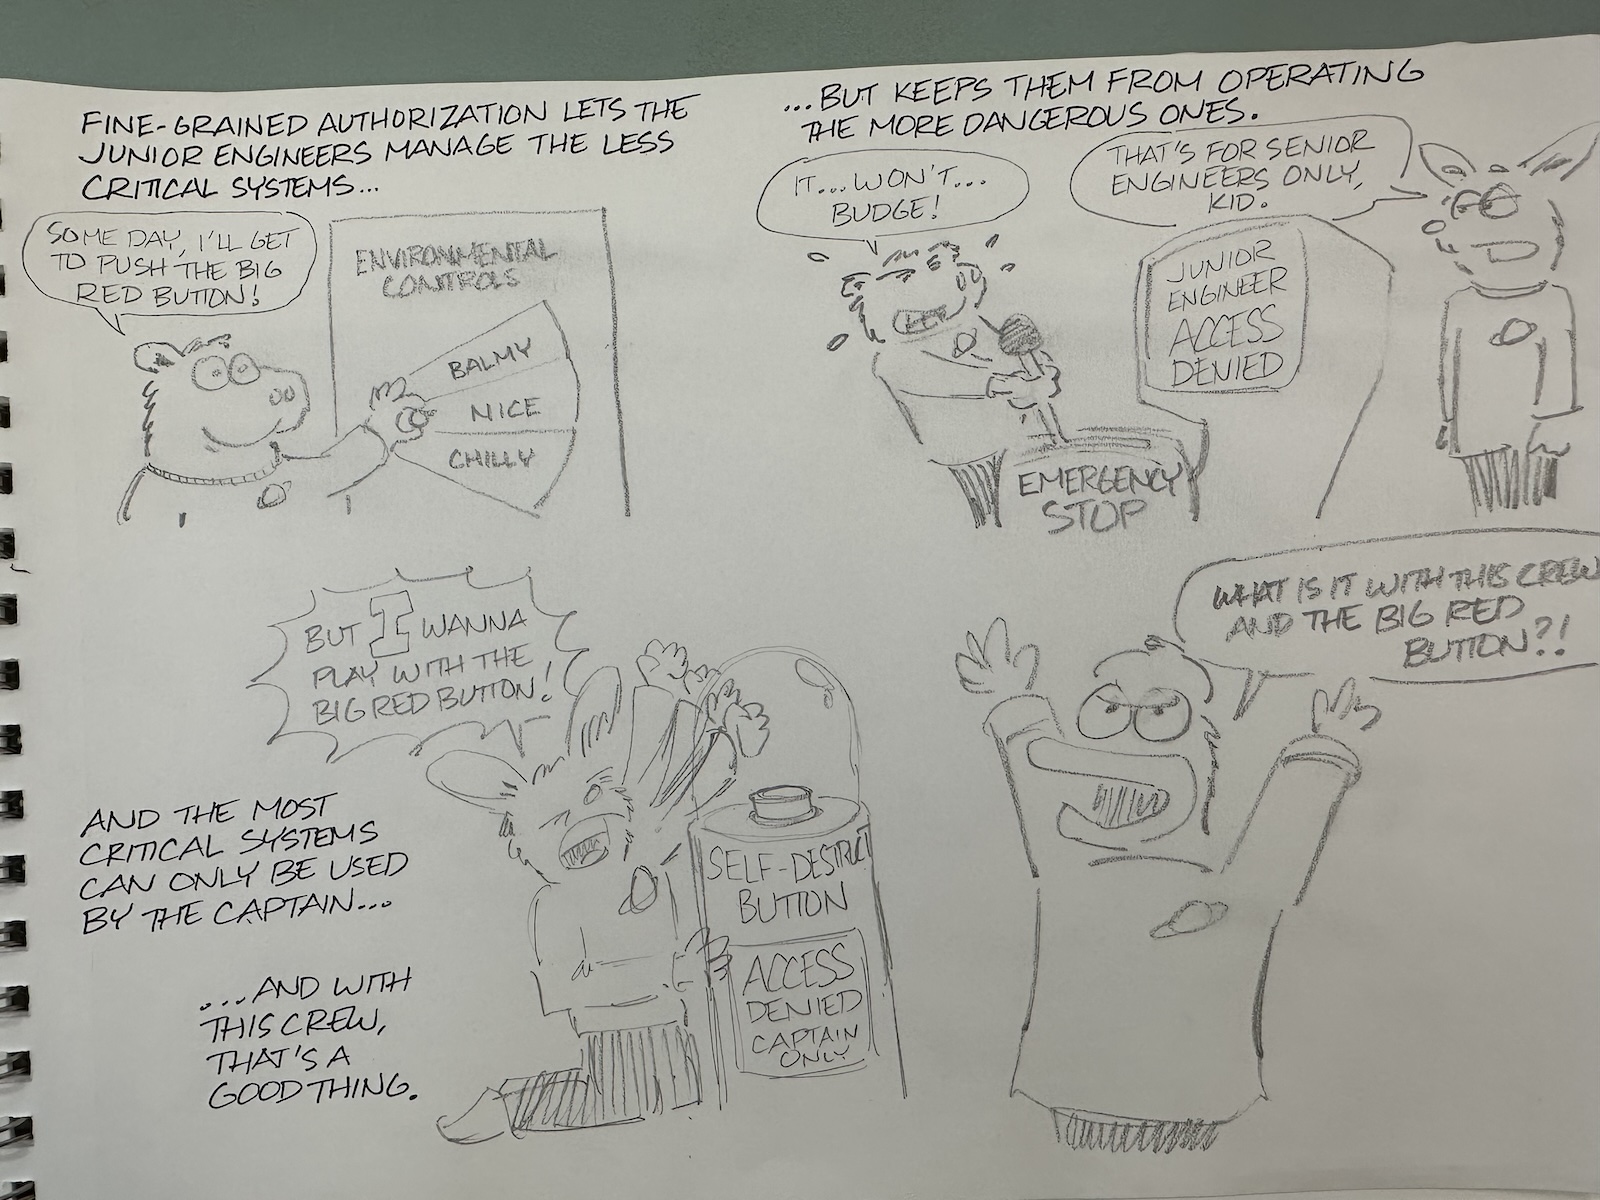 FINE-GRAINED AUTHORIZATION LETS THE
JUNIOR ENGINEERS MANAGE THE LESS
CRITICAL SYSTEMS...
SOME DAY, I'LL GET
TO PUSH THE BIG
RED BUTTON!
ENVIRONMENTAL
CONTROLS
BALMY
NICE
CHILLY
...BUT KEEPS THEM FROM OPERATING
THE MORE DANGEROUS ONES.
IT...WON'T...
BUDGE!
THAT'S FOR SENIOR
ENGINEERS ONLY,
KID.
JUNIOR
ENGINEER
ACCESS
DENIED
EMERGENCY
STOP
BUT I WANNA
PLAY WITH THE
BIG RED BUTTON!
AND THE MOST
CRITICAL SYSTEMS
CAN ONLY BE USED
BY THE CAPTAIN...
...AND WITH
THIS CREW,
THAT'S A
GOOD THING.
SELF-DESTRUCT
BUTTON
ACCESS
DENIED
CAPTAIN
ONLY
WHAT IS IT WITH THIS CREW
AND THE BIG RED
BUTTON?!